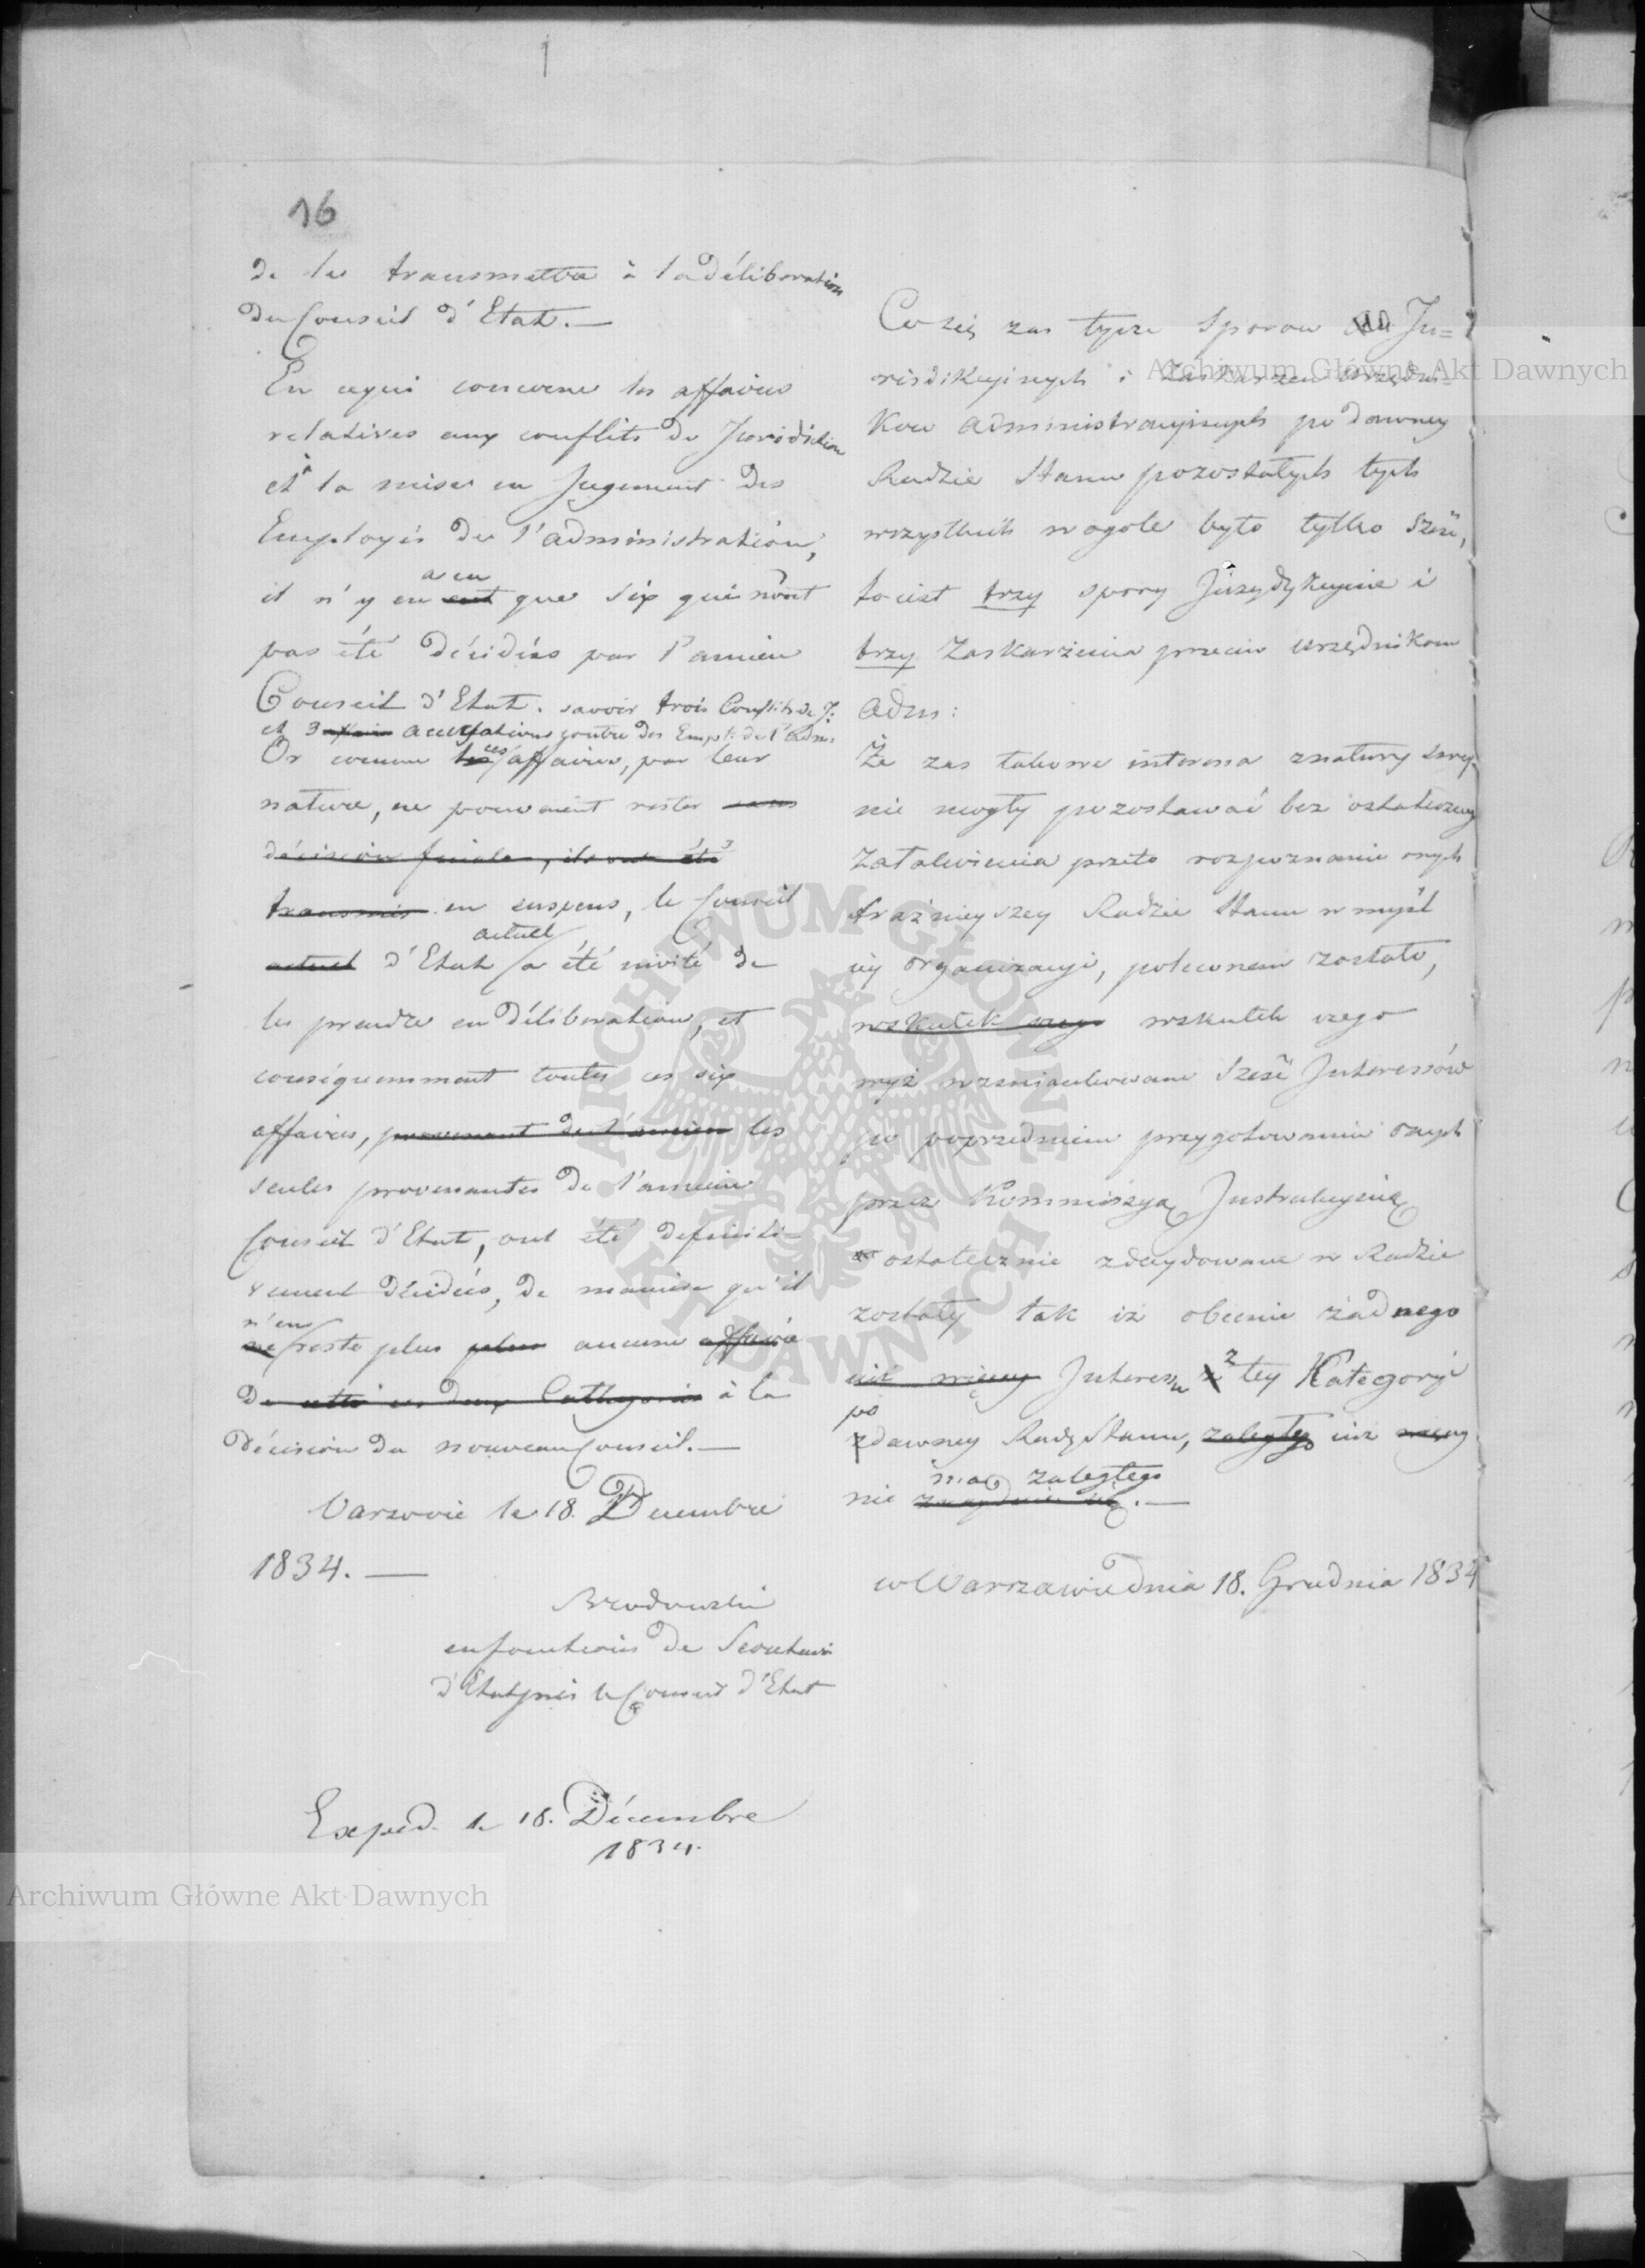 16
de les transmettre à la déliberation
du Conseil d'Etat. —
En ce qui concerne les affaires
relatives aux conflits de Jurisdiction
et à la mise en Jugement des
Employés de l'administration,
a eu
il n'y en eut que six qui n'ont
pas été décidées par l'ancien
Conseil d'Etat. savoir trois Conflits de J:
et 3 accusations contre des Empl: de l'Adm:
Or comme les ces affaires, par leur
nature, ne pouvaient rester sans
décision finale, ils ont été
transmis en suspens, le Conseil
actuel
actuel d'Etat a été invité de
les prendre en déliberation, et
conséquemment toutes ces six
affaires, provenant de l'ancien les
seules provenantes de l'ancien
Conseil d'Etat, ont été definiti-
vement décidées, de manière qu'il
n'en
ne reste plus plus aucune affaire
de cette ces deux Cathegories à la
décision du nouveau Conseil. —
Varsovie le 18. Decembre
1834. —
Brodowski
en fonctions de Secretaire
d'Etat près le Conseil d'Etat
Exped. le 18. Décembre
1834.
Co się zas tycze Sporow Ju=
risdikcyinych i Zaskarzen Urzędni=
kow administracyinych po dawney
Radzie Stanu pozostałych tych
wszystkich w ogole było tylko Sześć,
to iest trzy spory Juryzdykcyine i
trzy Zaskarżenia przeciw urzędnikom
adm:
Że zas takowe interessa z natury swey
nie mogły pozostawać bez ostateczney
załatwienia przeto rozpoznanie onych
teraźnieyszey Radzie Stanu w myśl
iey organizacyi, poleconem zostało,
wskutek czego wskutek czego
wyż wzmiankowane Sześć Interessów
po poprzedniem przygotowaniu onych
przez Kommissyą Instrukcyiną
ostatecznie zdecydowane w Radzie
zostały tak iż obecnie żadnego
iuż więcey Interessu z tey Kategoryi
po
z dawney Rady Stanu, zaległego iuż więcey
ma zaległego
nie znayduie się. —
w Warszawie dnia 18. Grudnia 1834
Archiwum Główne Akt Dawnych
Archiwum Główne Akt Dawnych
ARCHIWUM GŁÓWNE AKT DAWNYCH